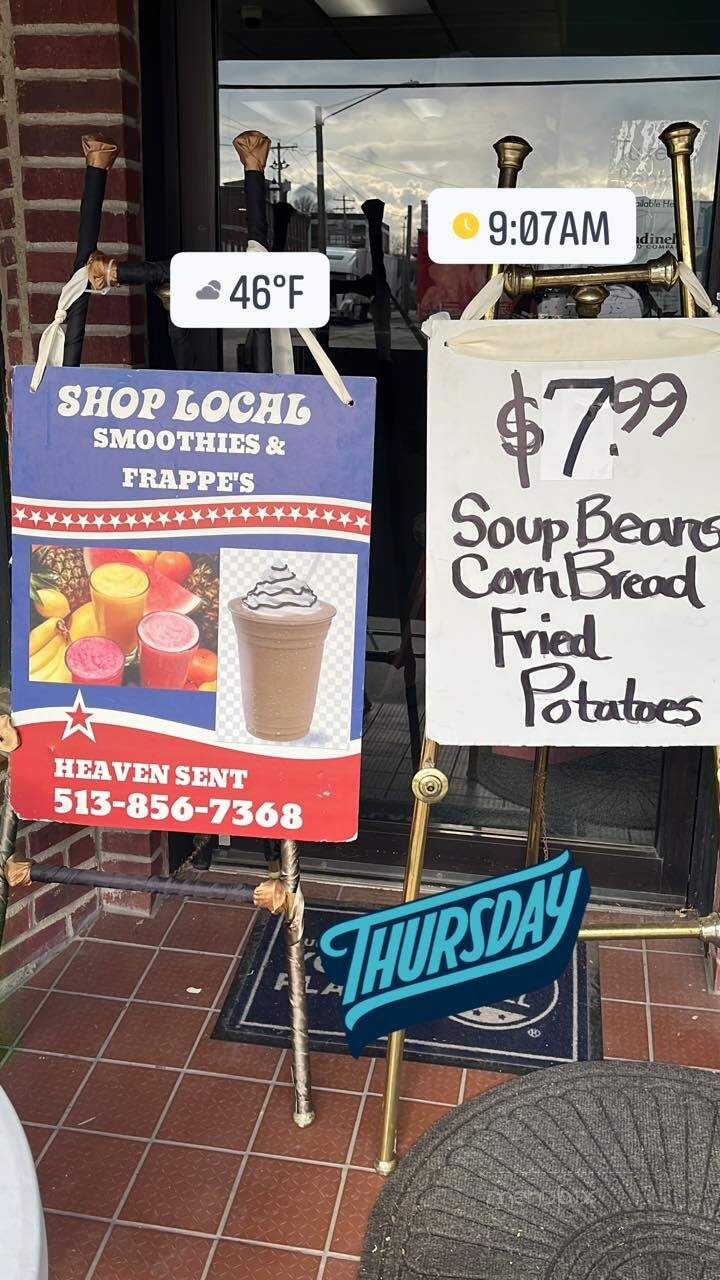 9:07AM
46°F
SHOP LOCAL
SMOOTHIES &
FRAPPE'S
HEAVEN SENT
513-856-7368
$7.99
Soup Beans
Corn Bread
Fried
Potatoes
THURSDAY